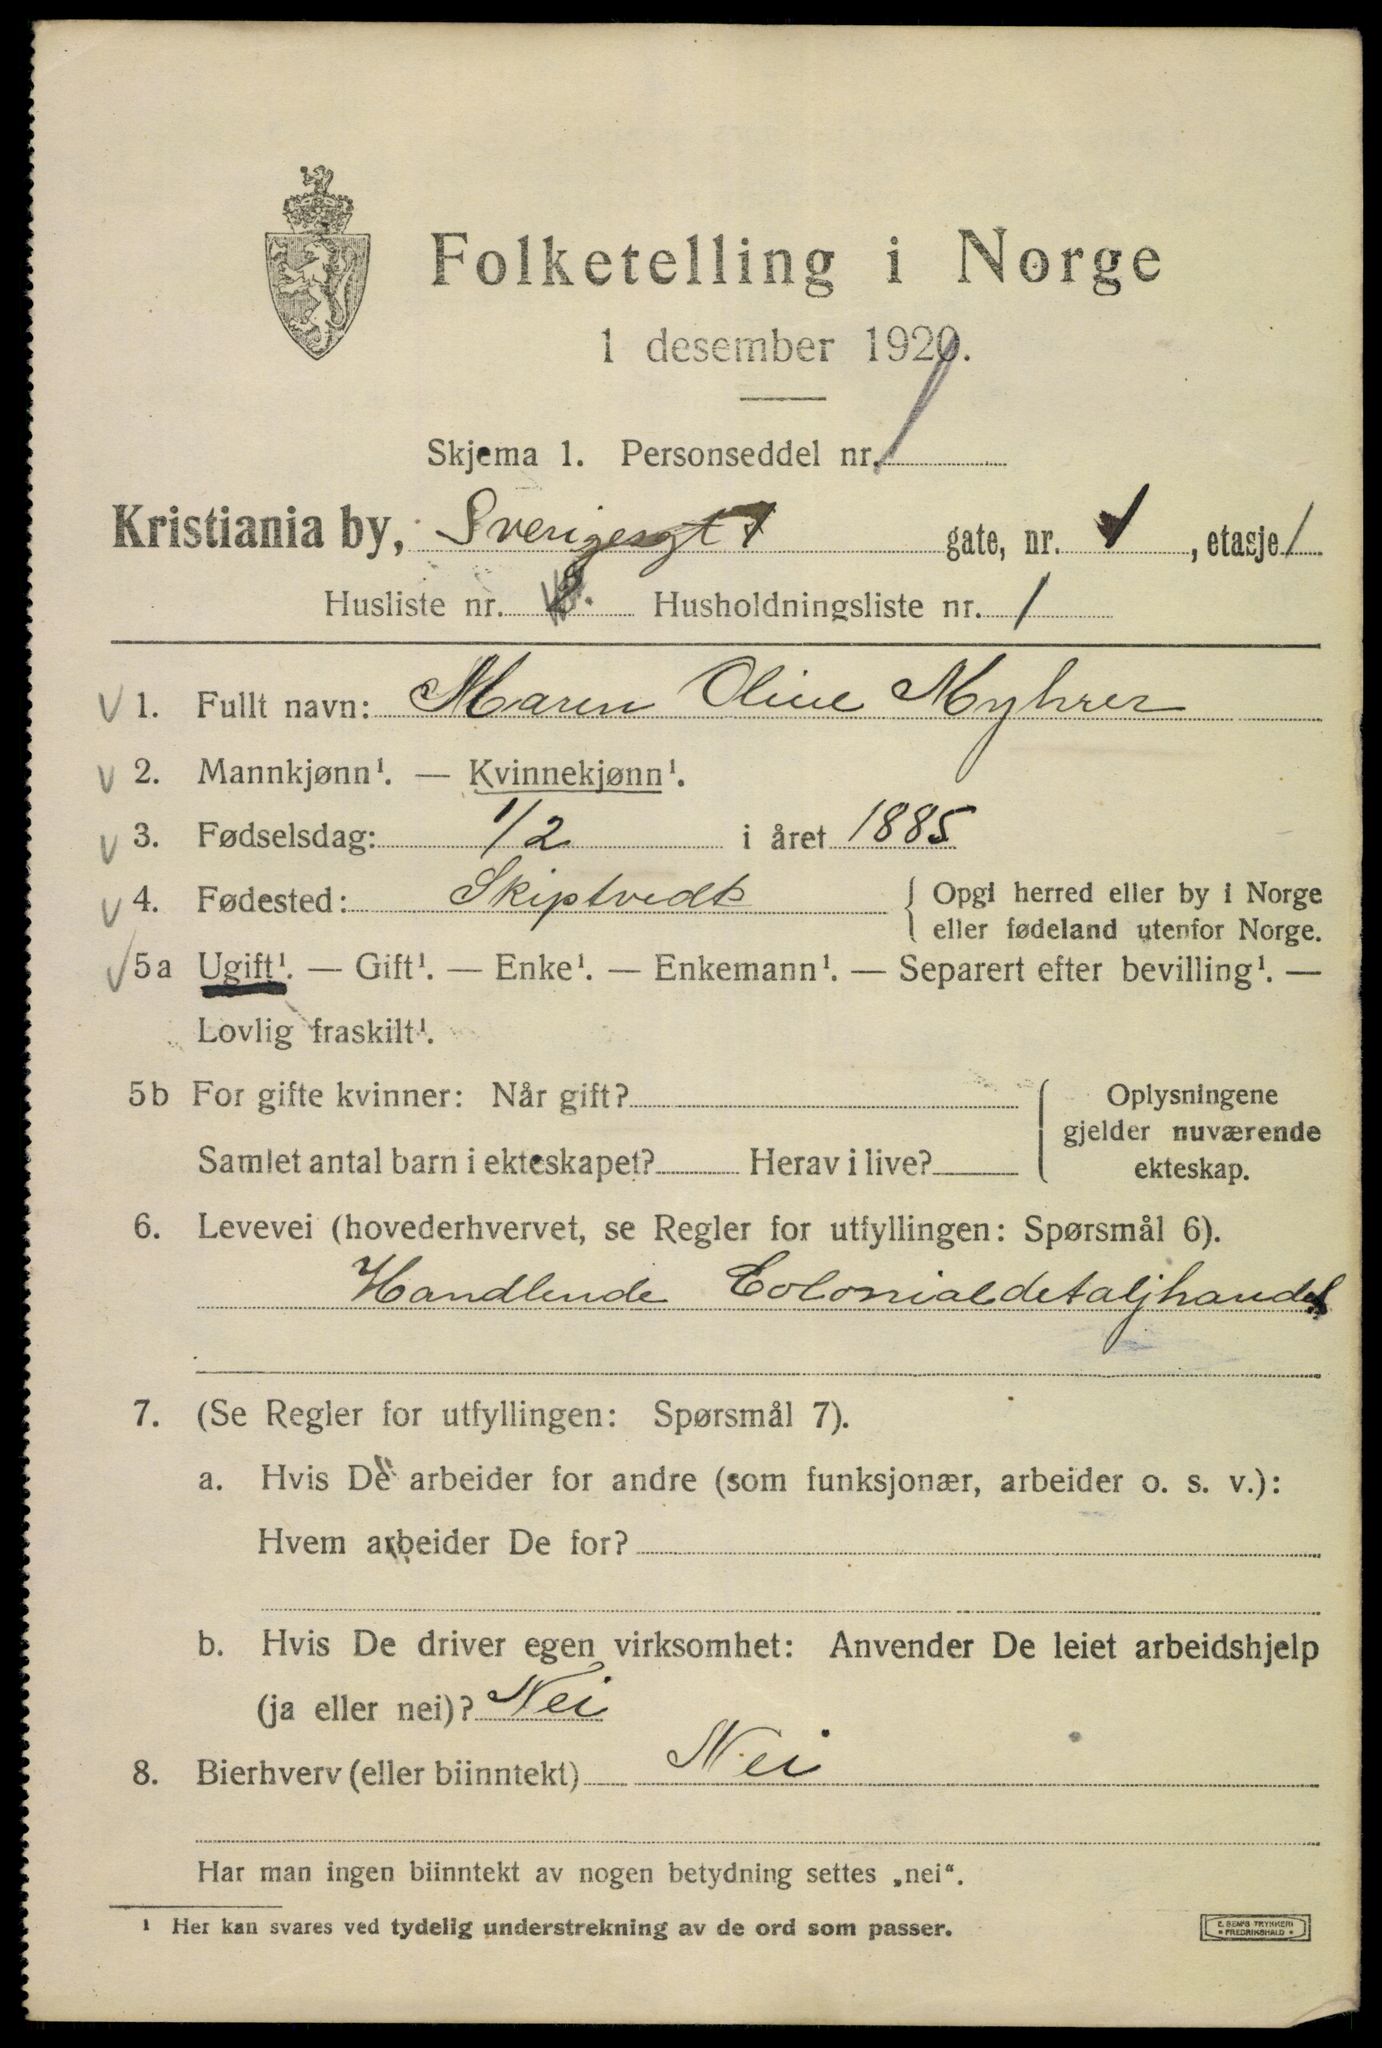 Folketelling i Norge
1 desember 1920.
Skjema 1. Personseddel nr. 1
Kristiania by, Sverigesgt 1 gate, nr. 1, etasje 1
Husliste nr. Husholdningsliste nr. 1
1. Fullt navn: Maren Oline Myhrer
2. Mannkjønn¹. — Kvinnekjønn¹.
3. Fødselsdag: 1/2 i året 1885
4. Fødested: Skiptvedt { Opgi herred eller by i Norge
eller fødeland utenfor Norge.
5a Ugift¹. — Gift¹. — Enke¹. — Enkemann¹. — Separert efter bevilling¹. —
Lovlig fraskilt¹.
5b For gifte kvinner: Når gift? { Oplysningene
gjelder nuværende
Samlet antal barn i ekteskapet? Herav i live? ekteskap.
6. Levevei (hovederhvervet, se Regler for utfyllingen: Spørsmål 6).
Handlende Colonialdetaljhandel
7. (Se Regler for utfyllingen: Spørsmål 7).
a. Hvis De arbeider for andre (som funksjonær, arbeider o. s. v.):
Hvem arbeider De for?
b. Hvis De driver egen virksomhet: Anvender De leiet arbeidshjelp
(ja eller nei)? Nei
8. Bierhverv (eller biinntekt) Nei
Har man ingen biinntekt av nogen betydning settes „nei“.
¹ Her kan svares ved tydelig understrekning av de ord som passer.
E. SEM'S TRYKKERI
* FREDRIKSHALD *